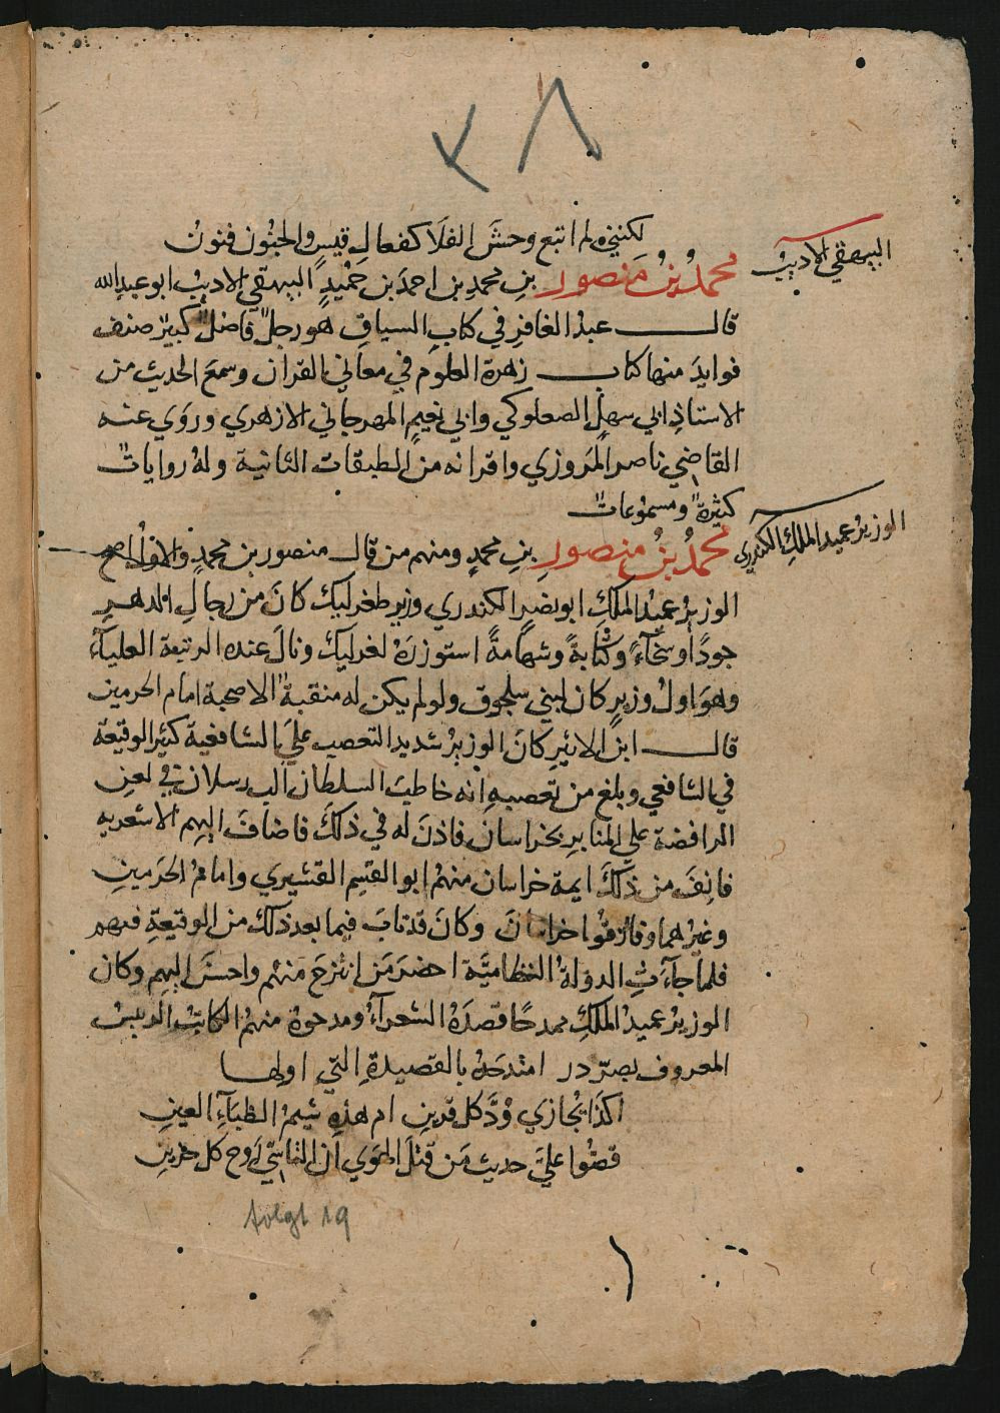 ٢٨
لكنني لم اتبع وحش الفلا كفعال قيس والجنون فنون
البيهقي الاديب
محمد بن منصور بن محمد بن احمد بن حميد البيهقي الاديب ابو عبد الله
قال عبد الغافر في كتاب السياق هو رجل فاضل كبير صنف
فوايد منها كتاب زهرة العلوم في معاني القران وسمع الحديث من
الاستاذ ابي سهل الصعلوكي وابي نعيم المهرجاني الازهري وروي عنه
القاضي ناصر المروزي واقرانه من الطبقات الثانية وله روايات
كثيرة ومسموعات
الوزير عميد الملك الكندري
محمد بن منصور بن محمد ومنهم من قال منصور بن محمد والاول اصح
الوزير عميد الملك ابو نصر الكندري وزير طغرليك كان من رجال الدهر
جودا وسخآء وكتابة وشهامة استوزره لغرليك ونال عنده الرتبة العلياء
وهو اول وزير كان لبني سلجوق ولو لم يكن له منقبة الا صحبة امام الحرمين
قال ابن الاثير كان الوزير شديد التعصب علي الشافعية كثير الوقيعة
في الشافعي وبلغ من تعصبه انه خاطب السلطان الب رسلان في لعن
الرافضة علي المنابر بخراسان فاذن له في ذلك فاضاف اليهم الاشعريه
فانف من ذلك ايمة خراسان منهم ابو القسم القشيري وامام الحرمين
وغيرهما وفارقوا خراسان وكان قد تاب فيما بعد ذلك من الوقيعة فيهم
فلما جآءت الدولة النظامية احضر من انتزح منهم واحسن اليهم وكان
الوزير عميد الملك ممدحا قصده الشعرآء ومدحوه منهم الكاتب الرييس
المعروف بصر در امتدحه بالقصيدة التي اولها
اكذا يجازي ود كل قرين ام هذه شيم الظباء العين
قصوا علي حديث من قتل الهوي ان التاسي روح كل حزين
folgt 19